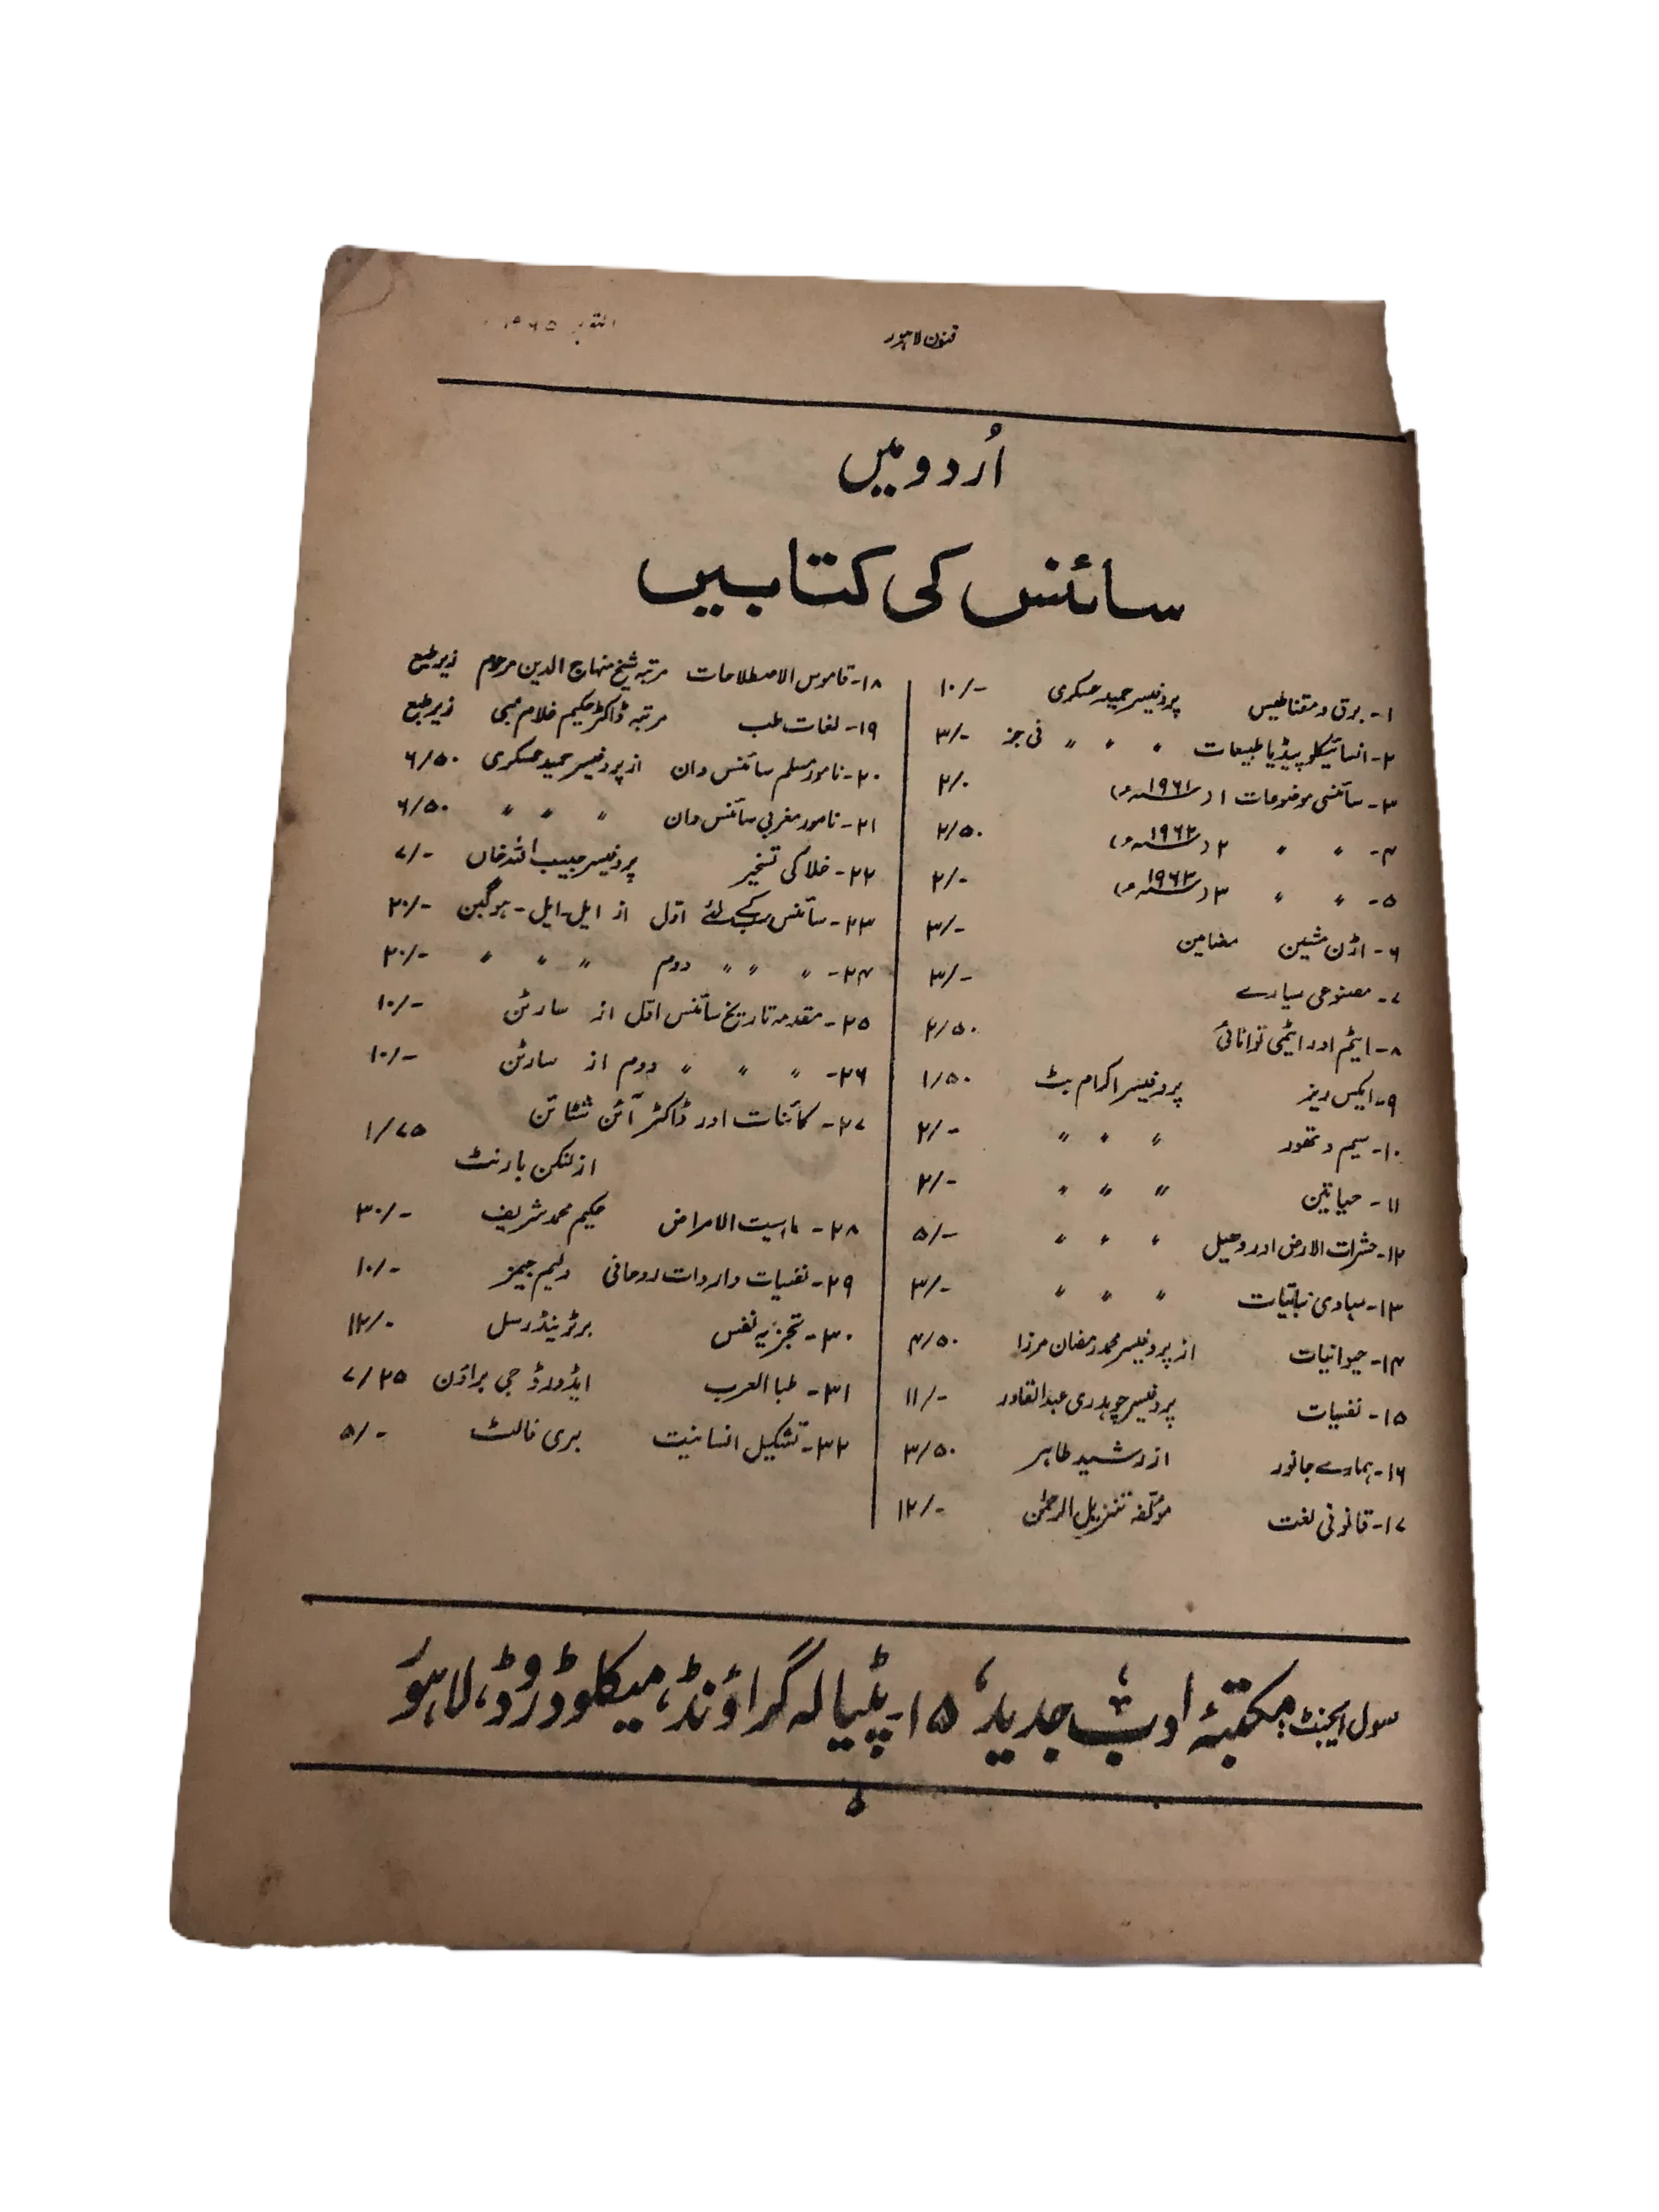 فنون لاہور
اُردو میں
سائنس کی کتابیں
۱- برق و مقناطیس پروفیسر حمید عسکری ۱۰/-
۲- انسائیکلو پیڈیا طبیعات " " " فی جز ۳/-
۳- سائنسی موضوعات ۱ (۱۹۶۱ء) ۲/۰
۴- " " ۲ (۱۹۶۲ء) ۲/۵۰
۵- " " ۳ (۱۹۶۳ء) ۲/-
۶- اڑن مشین مضامین ۳/-
۷- مصنوعی سیارے ۳/-
۸- ایٹم اور ایٹمی توانائی ۲/۵۰
۹- ایکس ریز پروفیسر اکرام بٹ ۱/۵۰
۱۰- سیم و تھور " " " ۲/-
۱۱- حیاتین " " " ۲/-
۱۲- حشرات الارض اور وھیل " " " ۵/-
۱۳- مبادی نباتیات " " " ۳/-
۱۴- حیوانیات از پروفیسر محمد رمضان مرزا ۴/۵۰
۱۵- نفسیات پروفیسر چوہدری عبدالقادر ۱۱/-
۱۶- ہمارے جانور از رشید طاہر ۳/۵۰
۱۷- قانونی لغت مؤلفہ تنزیل الرحمٰن ۱۲/-
۱۸- قاموس الاصطلاحات مرتبہ شیخ منہاج الدین مرحوم زیر طبع
۱۹- لغات طب مرتبہ ڈاکٹر حکیم غلام زیر طبع
۲۰- نامور مسلم سائنس دان از پروفیسر حمید عسکری ۶/۵۰
۲۱- نامور مغربی سائنس دان " " " ۶/۵۰
۲۲- خلا کی تسخیر پروفیسر حبیب اللہ خاں ۷/-
۲۳- سائنس سب کے لئے اوّل از ایل-ایل-ہوگبن ۲۰/-
۲۴- " " " دوم " " " ۲۰/-
۲۵- مقدمہ تاریخ سائنس اوّل از سارٹن ۱۰/-
۲۶- " " " دوم از سارٹن ۱۰/-
۲۷- کائنات اور ڈاکٹر آئن شٹائن
از لنکن بارنٹ ۱/۷۵
۲۸- ماہیت الامراض حکیم محمد شریف ۳۰/-
۲۹- نفسیات واردات روحانی ولیم جیمز ۱۰/-
۳۰- تجزیہ نفس برٹرینڈ رسل ۱۲/۰
۳۱- طب العرب ایڈورڈ جی براؤن ۷/۲۵
۳۲- تشکیل انسانیت بری فالٹ ۵/-
سول ایجنٹ: مکتبۂ ادبِ جدید، ۱۵-پٹیالہ گراؤنڈ، میکلوڈ روڈ، لاہور